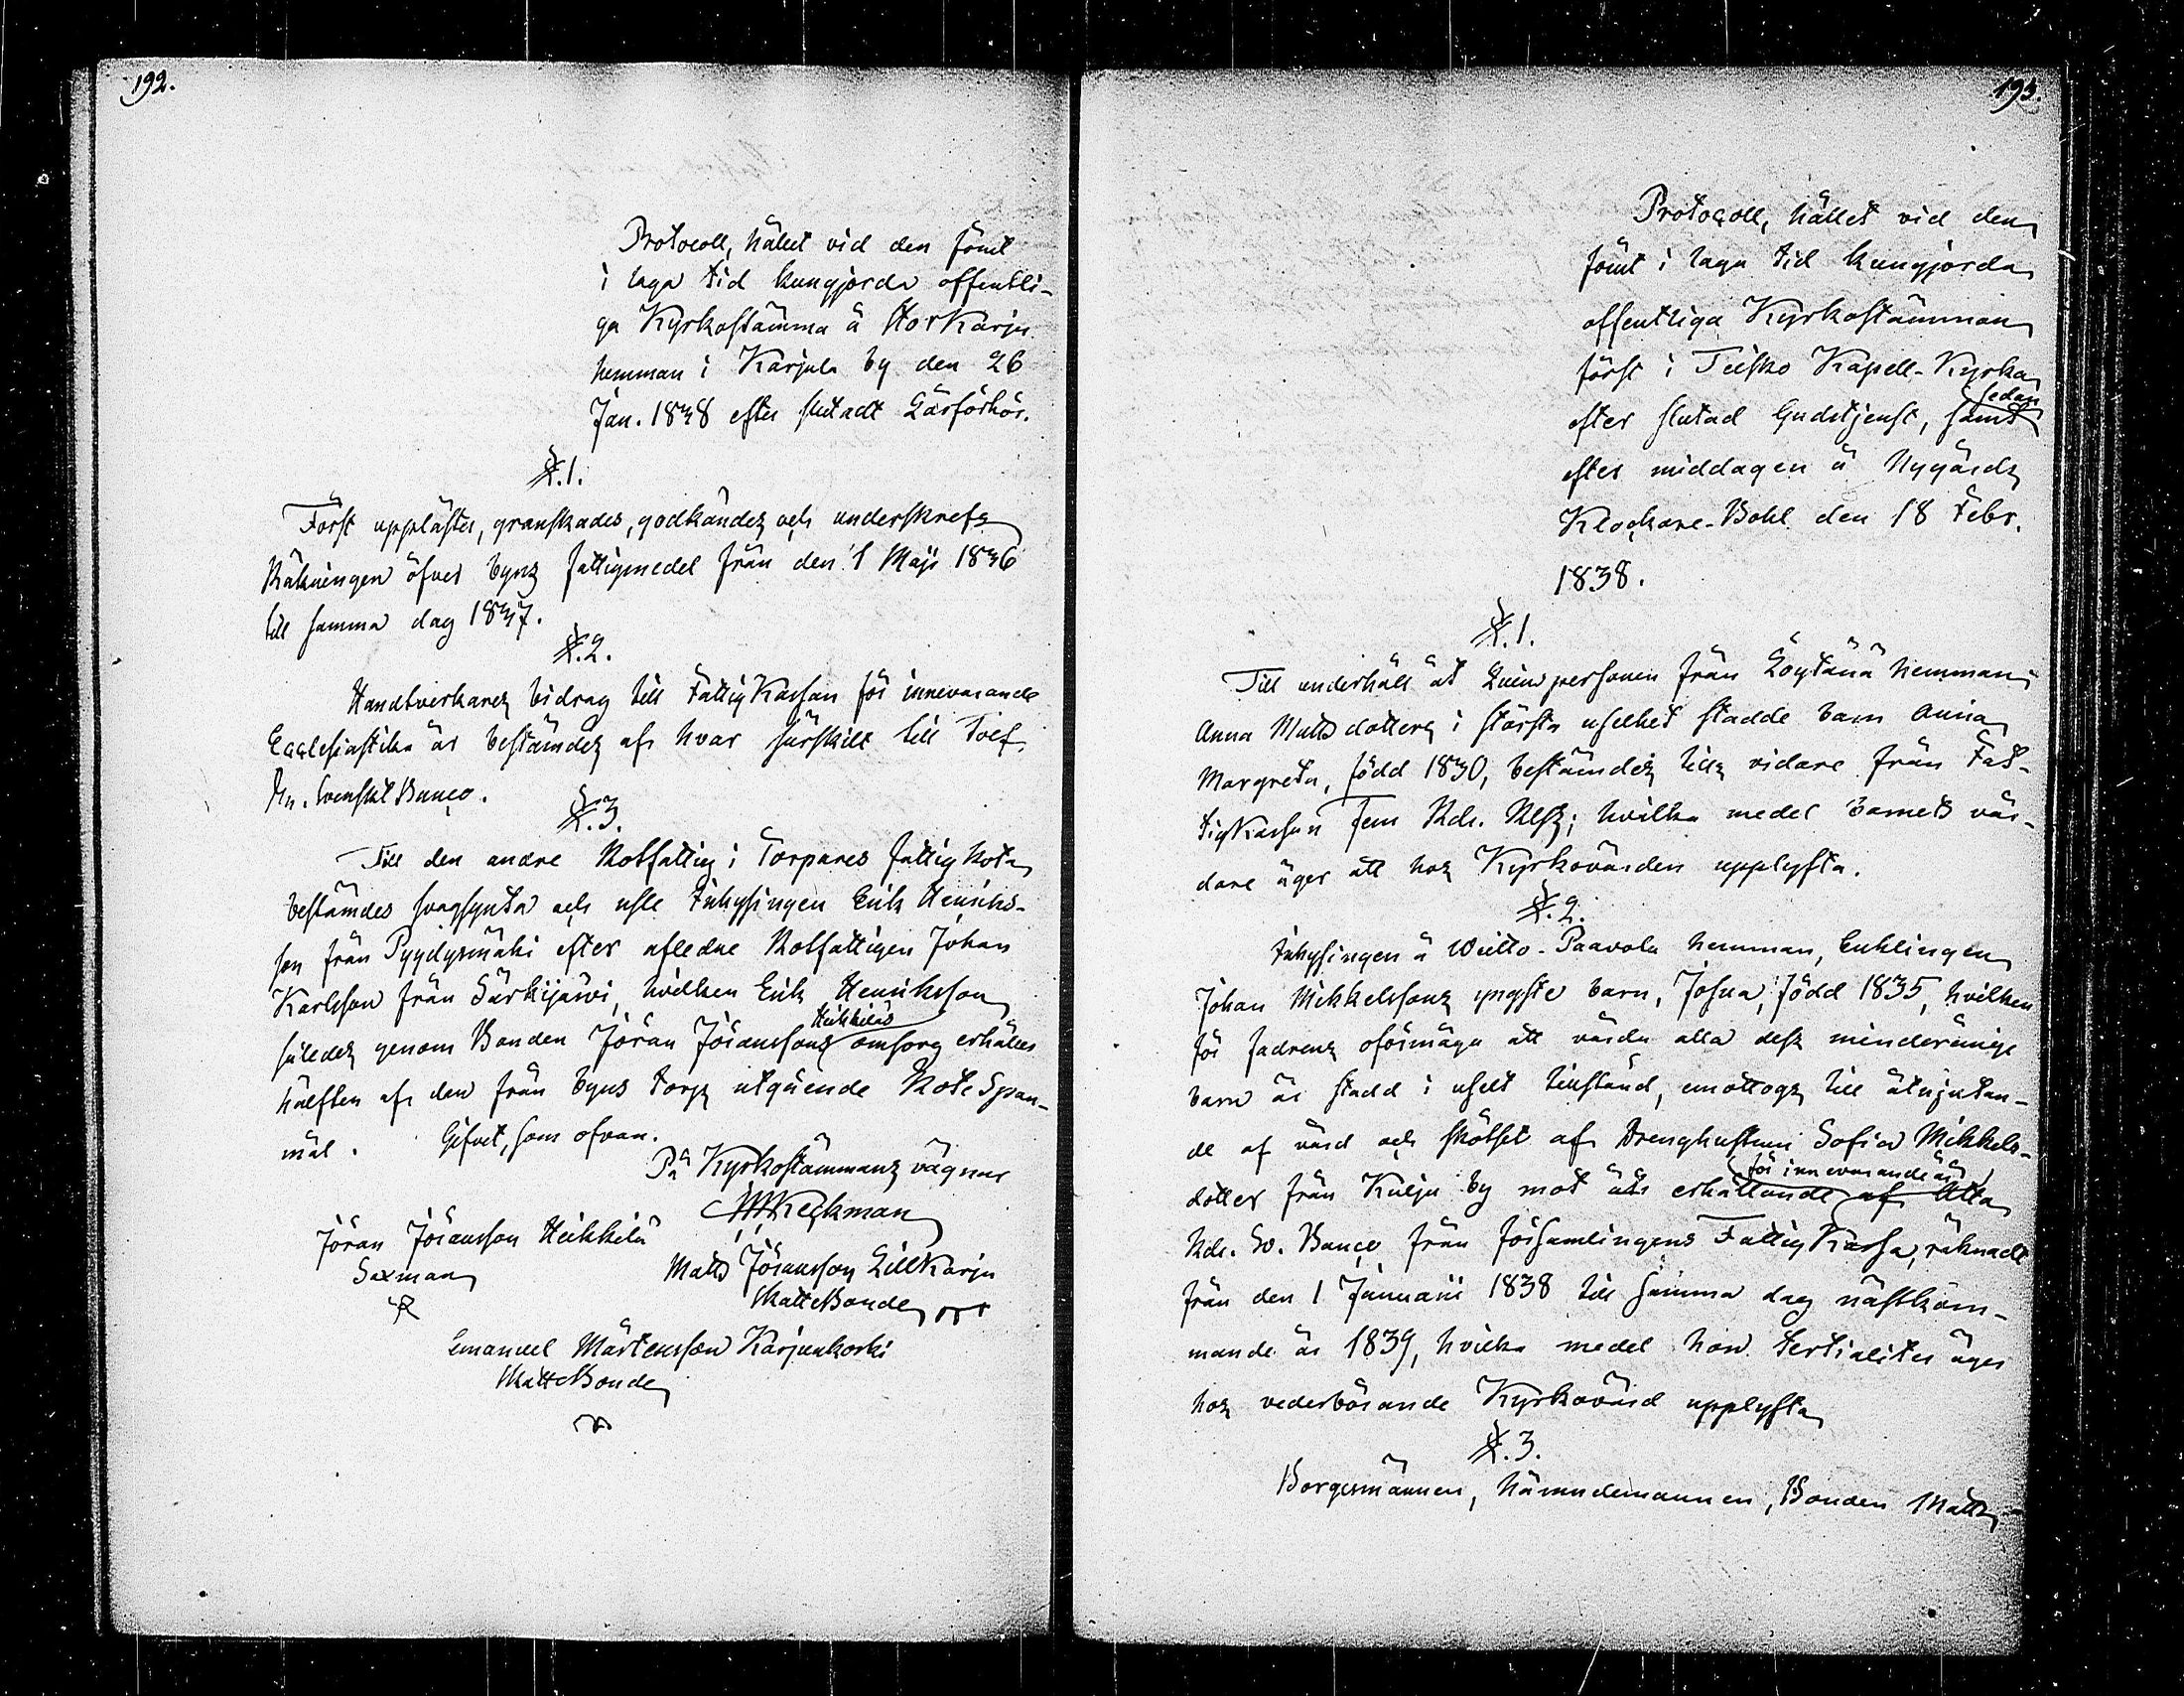 192.
Protocoll, hållet vid den förut
i laga tid kungjorda offentli-
ga Kyrkostämma å StorKarju
hemman i Karjula by den 26
Jan. 1838 efter slutadt Läsförhör.
§.1.
Först upplästes, granskades, godkändes och underskrefs
Räkningen öfver byns fattigmedel från den 1 Maji 1836
till samma dag 1837.
§.2.
Handtverkares bidrag till FattigKassan för innevarande
Ecclesiastike år bestämdes af hvar särskilt till Tolf
Sk. Svenskt Banco.
§.3.
Till den andre Rotfattig i Torpares fattig Rota
bestämdes svagsynta och usle Inhysingen Erik Henriks-
son från Pyydysmäki efter afledne Rotfattigen Johan
Karlsson från Särkijärvi, hvilken Erik Henriksson
således genom Bonden Jöran Jöranssons Heikkiläs omsorg erhåller
hälften af den från byns torp utgående Rote Span-
mål. Gifvet, som ofvan.
På Kyrkostämmans vägnar
Keckman
Jöran Jöransson Heikkilä
Sexman
Matts Jöransson LillKarju
SkatteBonde
Emanuel Mårtensson Karjunkoski
SkatteBonde
193.
Protocoll, hållet vid den
förut i laga tid kungjorda
offentliga Kyrkostämman
först i Teisko Kapell-Kyrka
efter slutad Gudstjenst, samt sedan
efter middagen å Nygårds
Klockare-Bohl den 18 Febr.
1838.
§.1.
Till underhåll åt Qvinspersonen från Löytänä hemman
Anna Mattsdotters i största uselhet stadde barn Anna
Margreta, född 1830, bestämdes tills vidare från Fat-
tigKassan Fem Rdr. Rgs; hvilka medel barnets vår-
dare äger att hos Kyrkovärden upplyfta.
§.2.
Inhysingen å Weitto-Paavola hemman, Enklingen
Johan Mikkelssons yngste barn, Josua, född 1835, hvilken
för fadrens oförmåga att vårda alla dess minderårige
barn är stadd i uselt tillstånd, emottogs till åtnjutan-
de af vård och skötsel af Drenghustrun Sofia Mikkels-
dotter från Kulju by mot års erhållande för innevarande år af Åtta
Rdr. Sv. Banco från församlingens Fattig Kassa, räknadt
från den 1 Januarii 1838 till samma dag nästkom-
mande år 1839, hvilka medel hon tertialiter äger
hos vederbörande Kyrkovärd upplyfta
§.3.
Borgesmännen, Nämndemannen, Bonden Matts